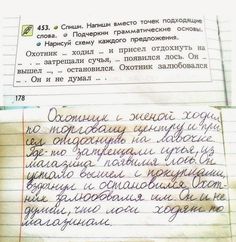 453. Спиши. Напиши вместо точек подходящие
слова. Подчеркни грамматические основы.
Нарисуй схему каждого предложения.
Охотник ... ходил ... и присел отдохнуть на
... . ... затрещали сучья, ... появился лось. Он
вышел ..., ... остановился. Охотник залюбовался
... . Он и не думал ... .
178
Охотник с женой ходил
по торговому центру и при-
сел отдохнуть на лавочке.
Где-то затрещали сучья, из
магазина появился лось. Он
устало вышел с покупками,
вздохнул и остановился. Охот-
ник залюбовался им. Он и не
думал, что лоси ходят по
магазинам.